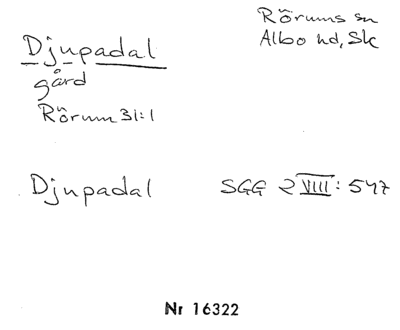 Rörums sn
Albo hd, Sk
Djupadal
gård
Rörum 31:1
Djupadal SGG 2 VIII: 547
Nr 16322